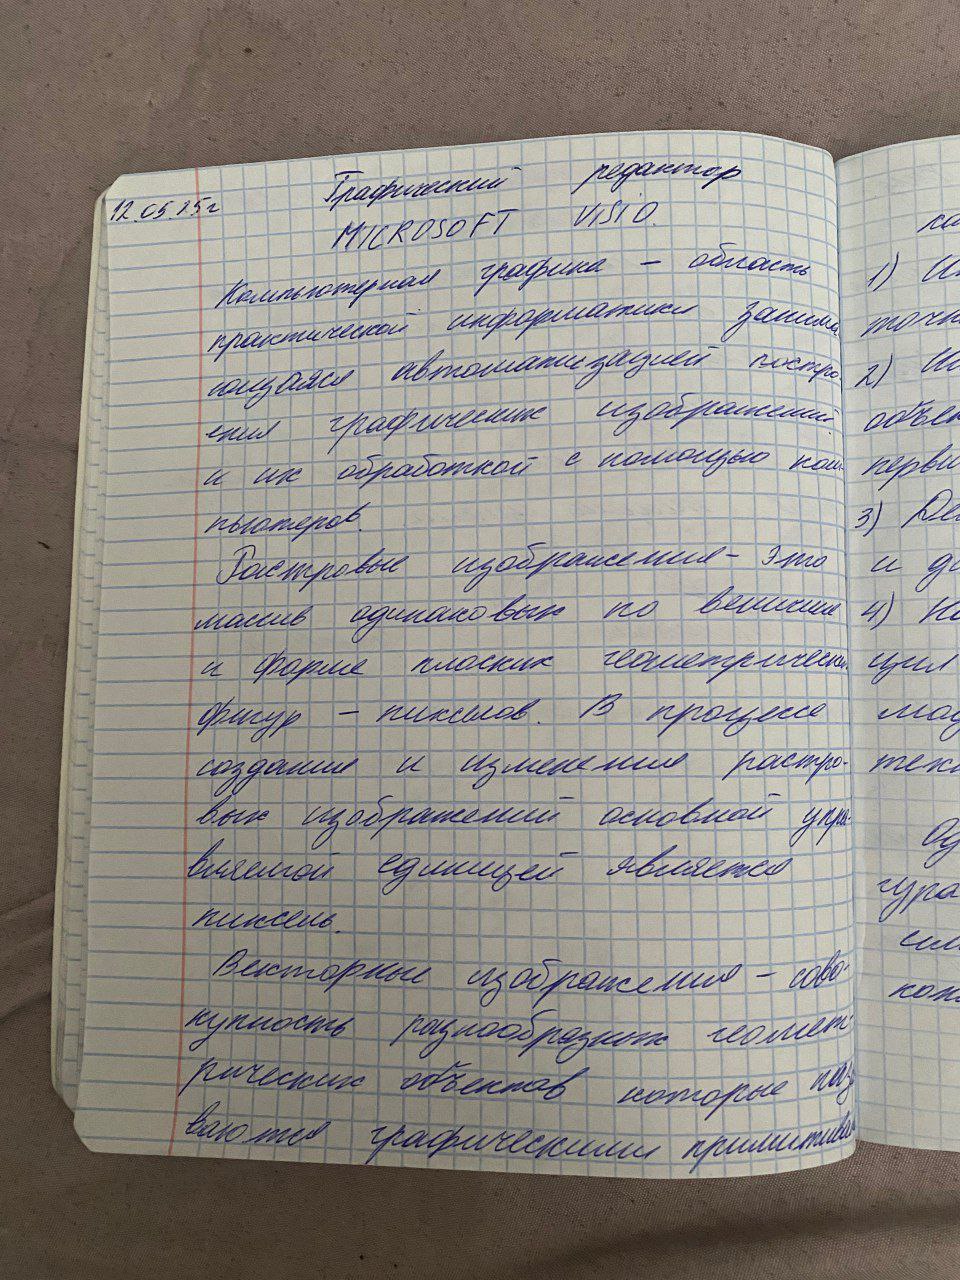 12.05.15г
Графический редактор
MICROSOFT VISIO.
Компьютерная графика – область
практической информатики занима
ющаяся автоматизацией постро
ения графических изображений
и их обработкой с помощью ком
пьютеров.
Растровые изображения – это
массив одинаковых по величине
и форме плоских геометрических
фигур – пикселов. В процессе
создания и изменения растро-
вых изображений основной упра-
вляемой единицей является
пиксель.
Векторные изображения – сово-
купность разнообразных геомет-
рических объектов которые назы
ваются графическими примитивам
1)
точн
2)
объек
перви
3)
и
4)
ции
тех
гура